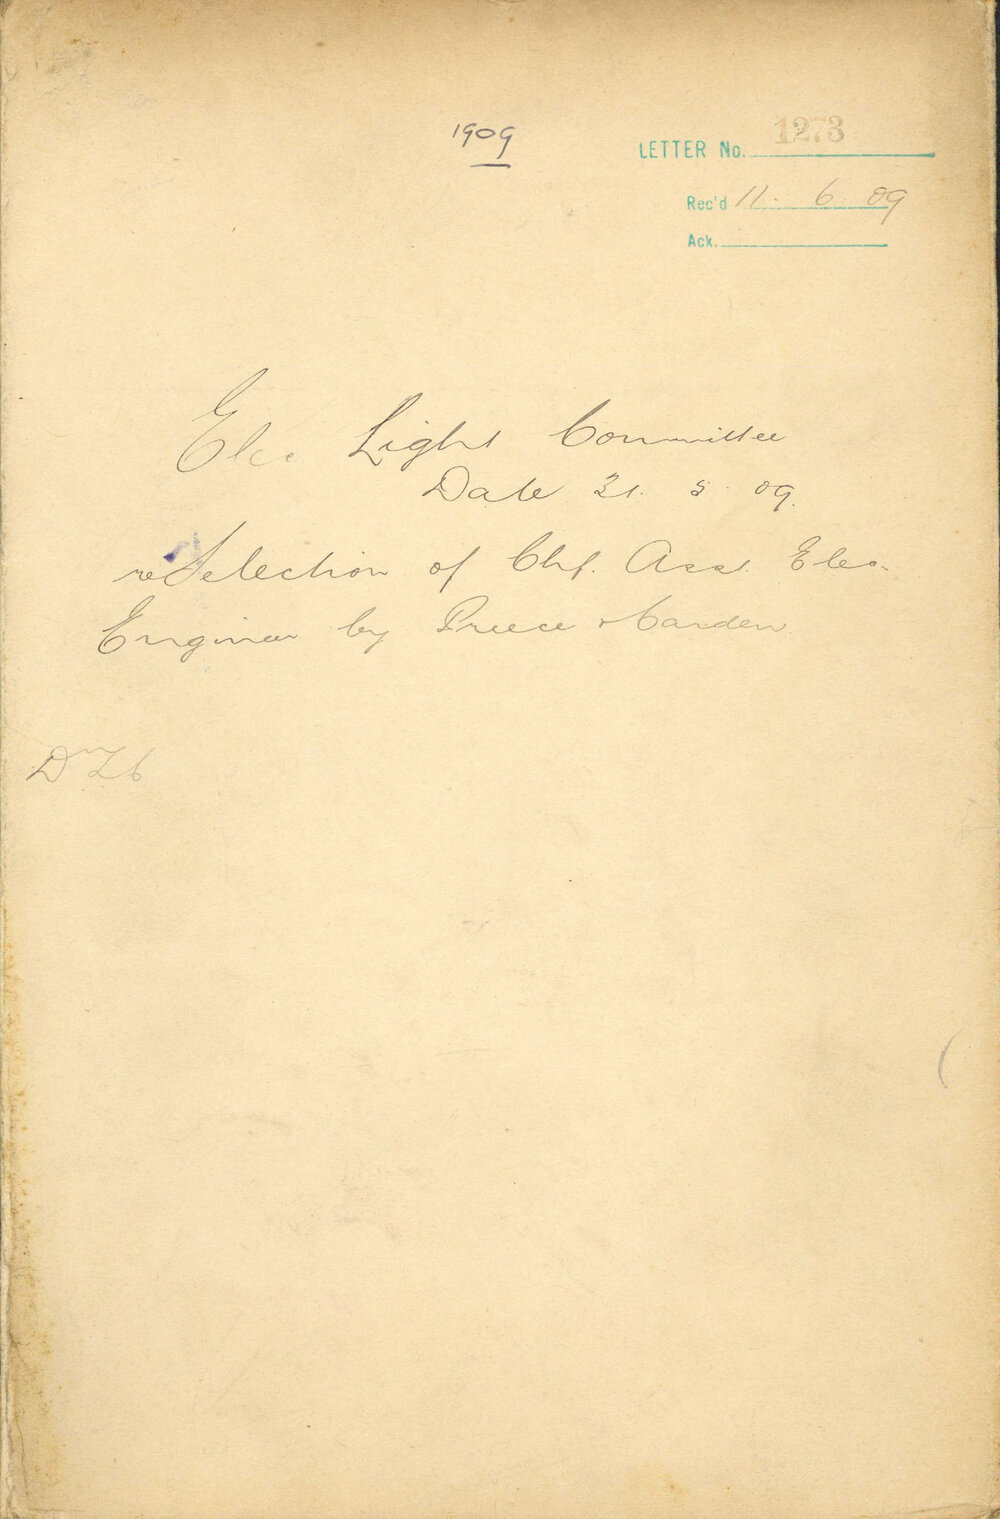 1909
LETTER No. 1273
Rec'd 11. 6 09
Ack.
Elec Light Committee
Date 31. 5. 09.
re Selection of Chf. Asst. Elec.
Engineer by Preece & Carden